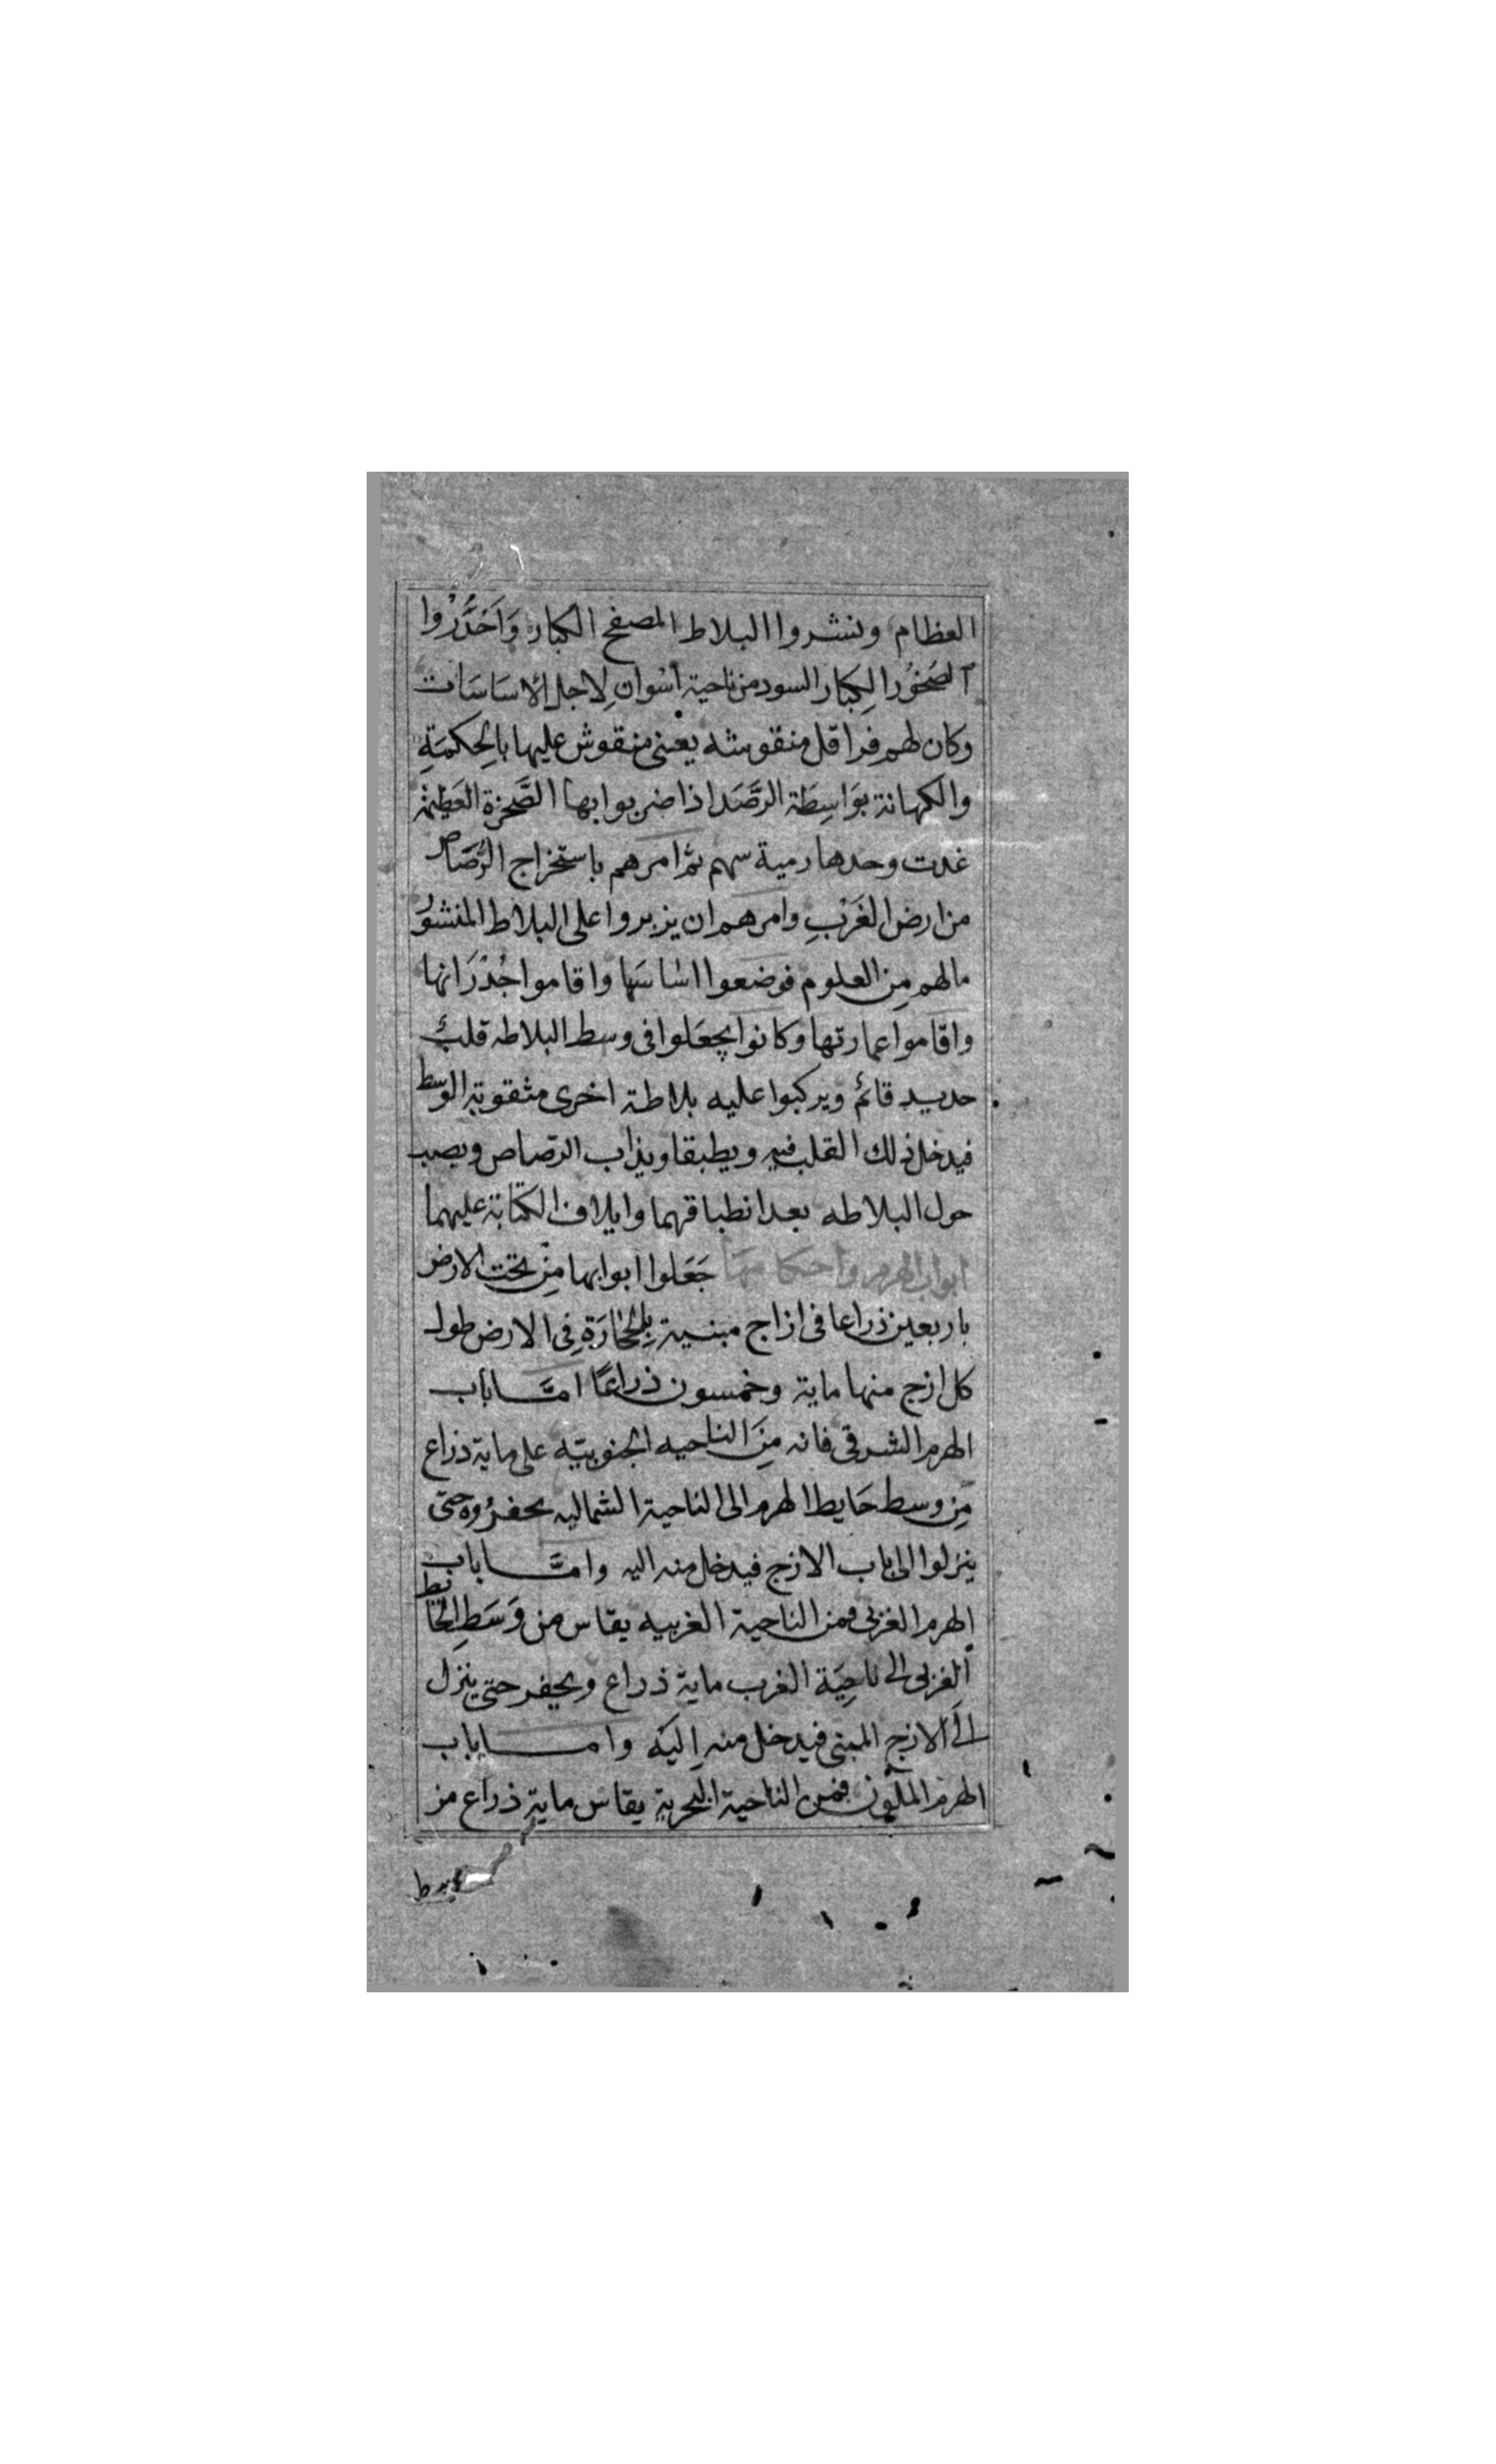 العظام ونشروا البلاط المصفح الكبار وَاَحَدَّرُوا
الصَخوُر الكِبَار السود من ناحية اسْوان لِاجل الاسَاسَات
وكان لهم فراقل منقوشه يعنى منقوش عليها بالحِكمَةِ
والكهانة بوَاسِطَة الرَّصَد اذا ضربوا بها الصَّخرة العَظيمة
غدت وحدها رمية سهم ثم امرهم باستخراج الرُصَاص
من ارض الغَرْبِ وامرهم ان يزبروا على البلاط المنشوُر
مالهم مِن العلوم فوضعوا اسَاسَها واقاموا جُدْرَانها
واقاموا عمارتها وكانوا يجعَلوا فى وسط البلاطه قلب
حديد قائم ويركبوا عليه بلاطة اخرى مثقوبة الوسط
فيدخل ذلك القلب فيه ويطبقا ويذاب الرصاص ويصب
حول البلاطه بعد انطباقهما وايلاف الكتابة عليهما
ابواب الهرم واحكامها جَعَلوا ابوابها مِنْ تحت الارض
باربعين ذراعا فى ازاج مبنية بِالحجَارَةِ فِى الارض طول
كل ازج منها ماية وخمسون ذراعًا امَّا باب
الهرم الشرقى فانه مِنَ الناحيه الجنوبيّه على ماية ذراع
مِن وسط حَايط الهرم الى الناحية الشماليه يحفرُوه حتى
ينزلوا الى باب الازج فيدخل منه اليه وامَّا باب
الهرم الغربى فمن الناحية الغربيه يقاس من وَسَطِ الحَايط
الغربى الى ناحِيَة الغرب ماية ذراع ويحفر حتى ينزل
الَى الازج المبنى فيدخل منه اِليَه واما باب
الهرم الملوّن فمن الناحية البحرية يقاس ماية ذراع من
وسط